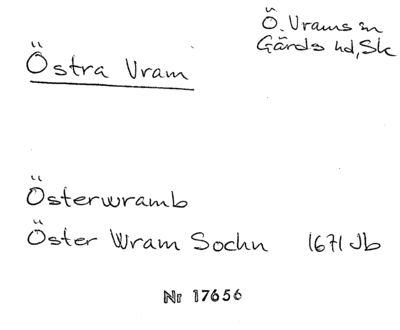 Östra Vram
Ö. Vrams sn
Gärds hd, Sk
Österwramb
Öster Wram Sochn 1671 Jb
Nr 17656